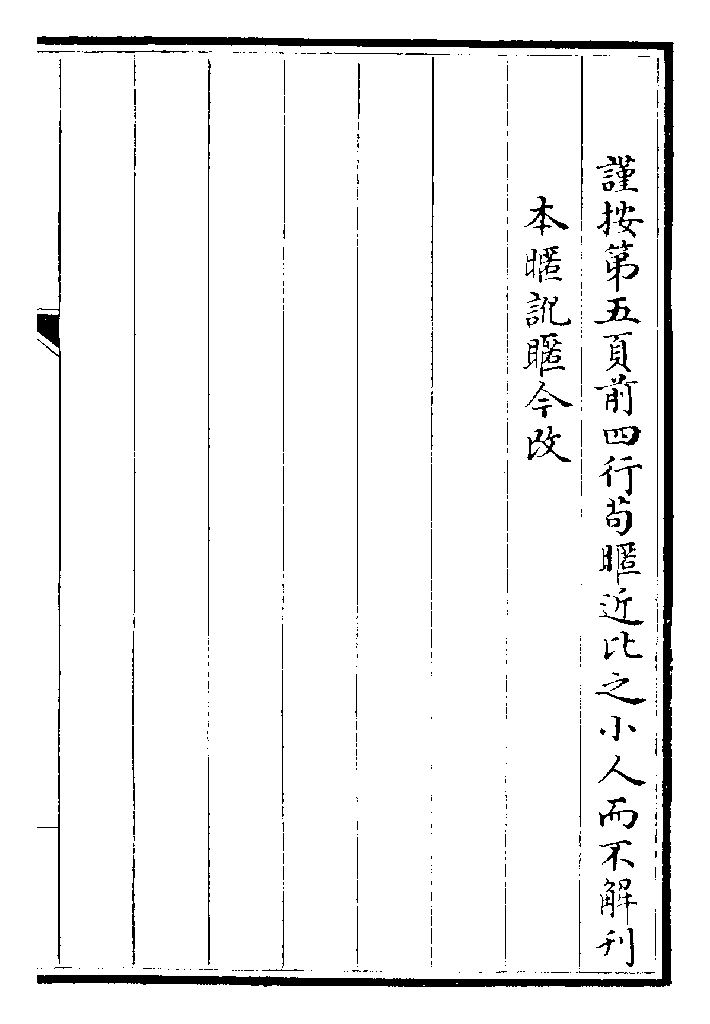 謹按第五頁前四行茍暱近比之小人而不解刊
本暱訛䁥今改